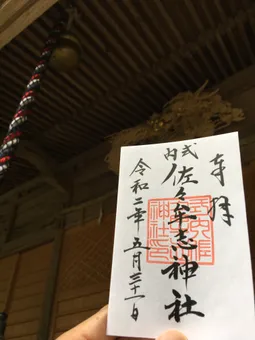 奉拝
式内
佐々牟志神社
令和二年五月三十一日